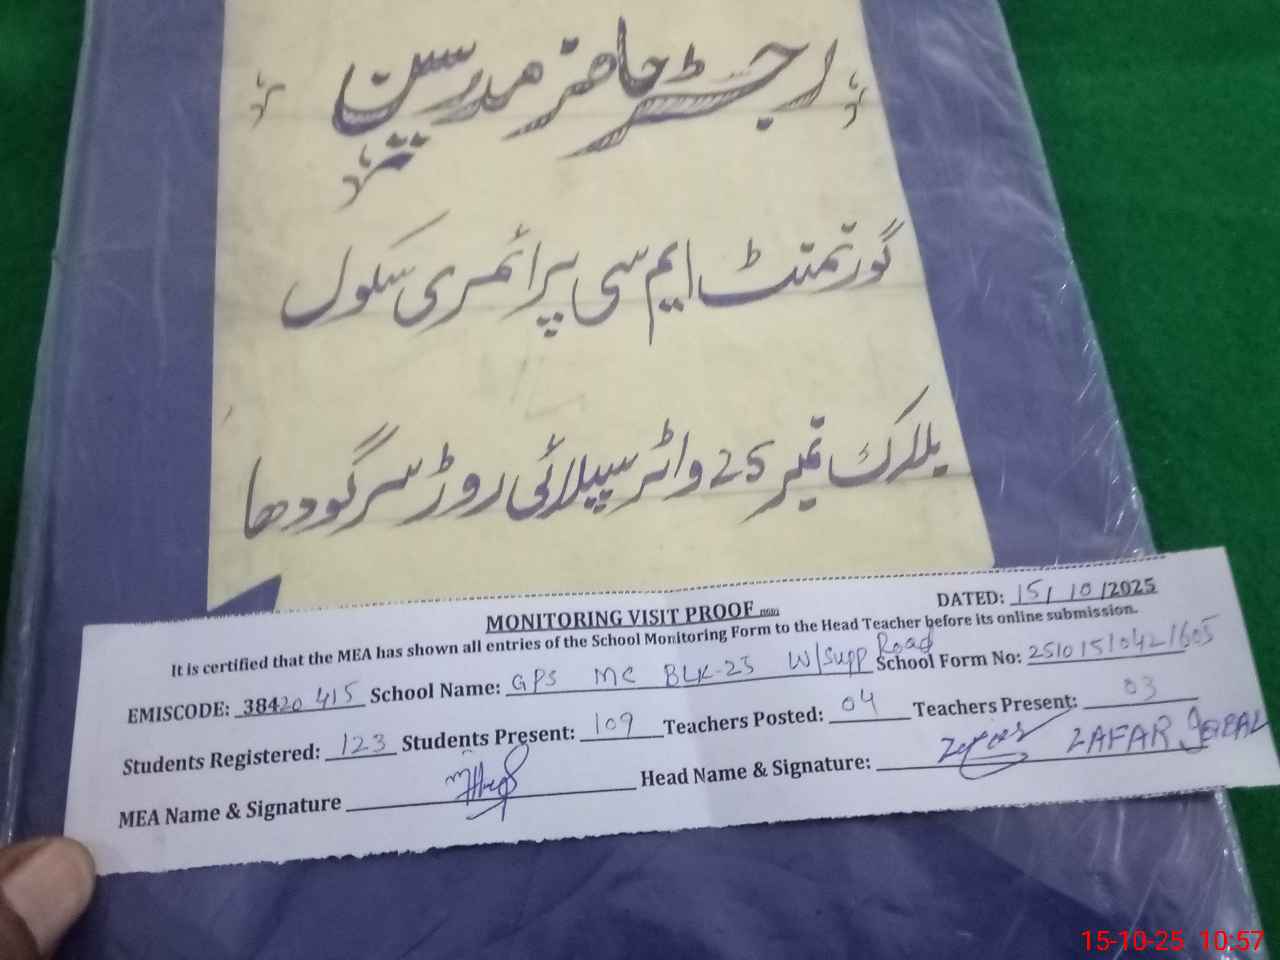 رجسٹر حاضر مدرسین
گورنمنٹ ایم سی پرائمری سکول
بلاک نمبر 25 واٹر سپلائی روڈ سرگودھا
MONITORING VISIT PROOF
DATED: 15/10/2025
It is certified that the MEA has shown all entries of the School Monitoring Form to the Head Teacher before its online submission.
EMISCODE: 38420415 School Name: GPS MC BLK-25 W/Supp Road School Form No: 25101510421605
Students Registered: 123 Students Present: 109 Teachers Posted: 04 Teachers Present: 03
MEA Name & Signature Head Name & Signature: ZAFAR IQBAL
15-10-25 10:57